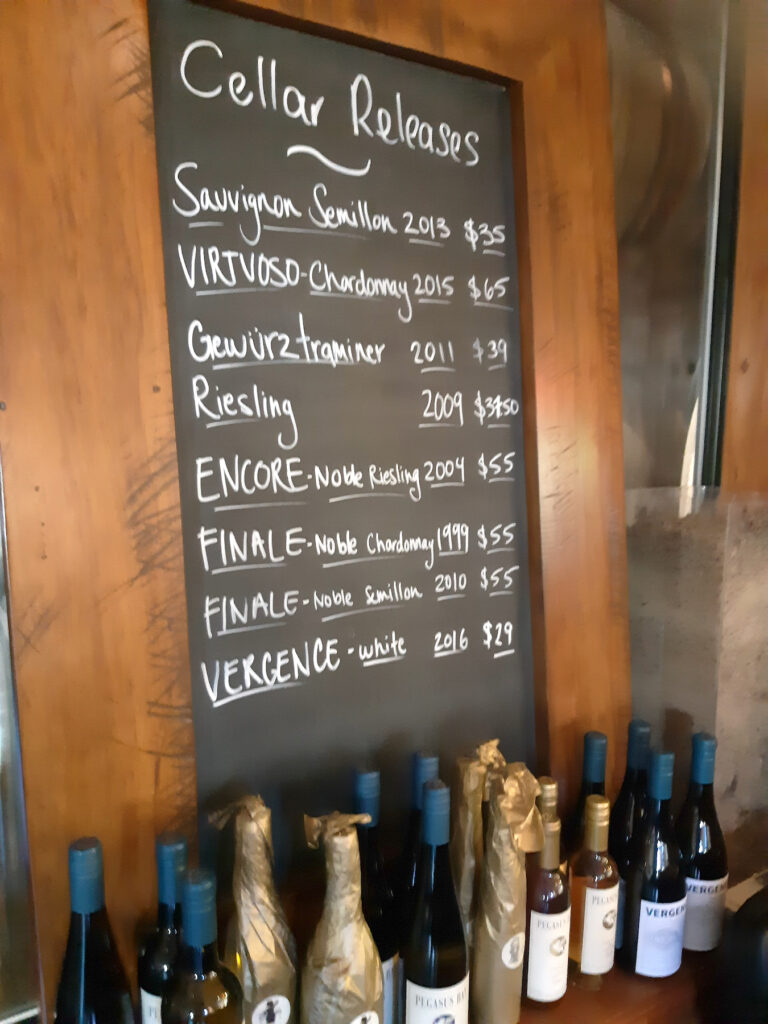 Cellar Releases
Sauvignon Semillon 2013 $35
VIRTUOSO-Chardonnay 2015 $65
Gewürztraminer 2011 $39
Riesling 2009
ENCORE-Noble Riesling 2004 $55
FINALE-Noble Chardonnay 1999 $55
FINALE-Noble Semillon 2010 $55
VERGENCE-white 2016 $29
VERGEN
VERGEN
PEGASUS BAY